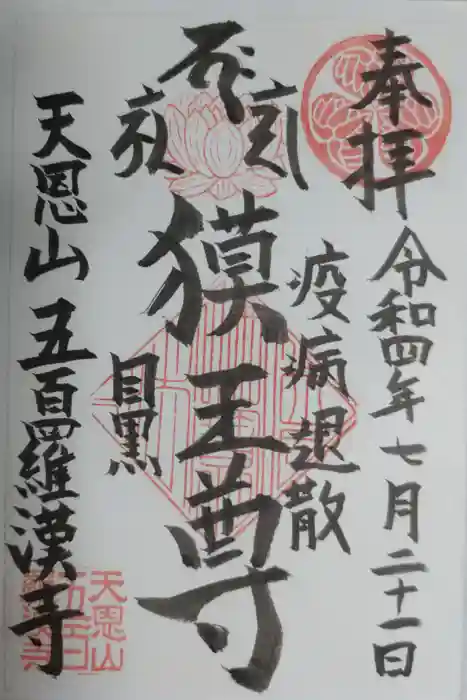 奉拝
令和四年七月二十一日
疫病退散
獏王尊
目黒
天恩山五百羅漢寺
天恩山